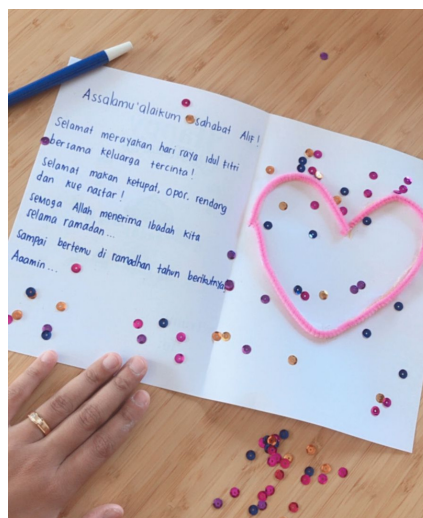 Assalamu'alaikum sahabat Alif!
Selamat merayakan hari raya Idul Fitri
bersama keluarga tercinta!
Selamat makan ketupat, opor, rendang
dan kue nastar!
semoga Allah menerima ibadah kita
selama ramadan...
sampai bertemu di ramadhan tahun berikutnya.
Aaamin...